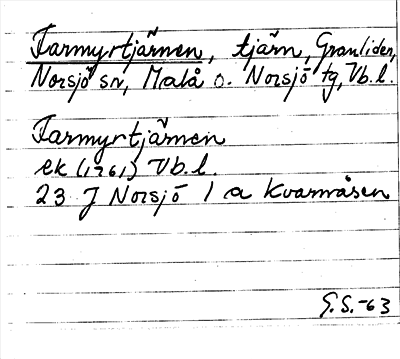 Tarmyrtjärnen, tjärn, Granliden,
Norsjö sn, Malå o. Norsjö tg, Vb.l.
Tarmyrtjärnen
ek (1961) Vb.l.
23 J Norsjö 1 a Kvarnåsen
G.S.-63